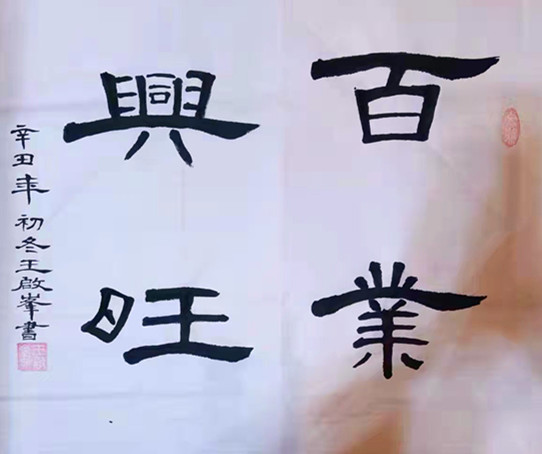 百業
興旺
辛丑年初冬王啟峯書